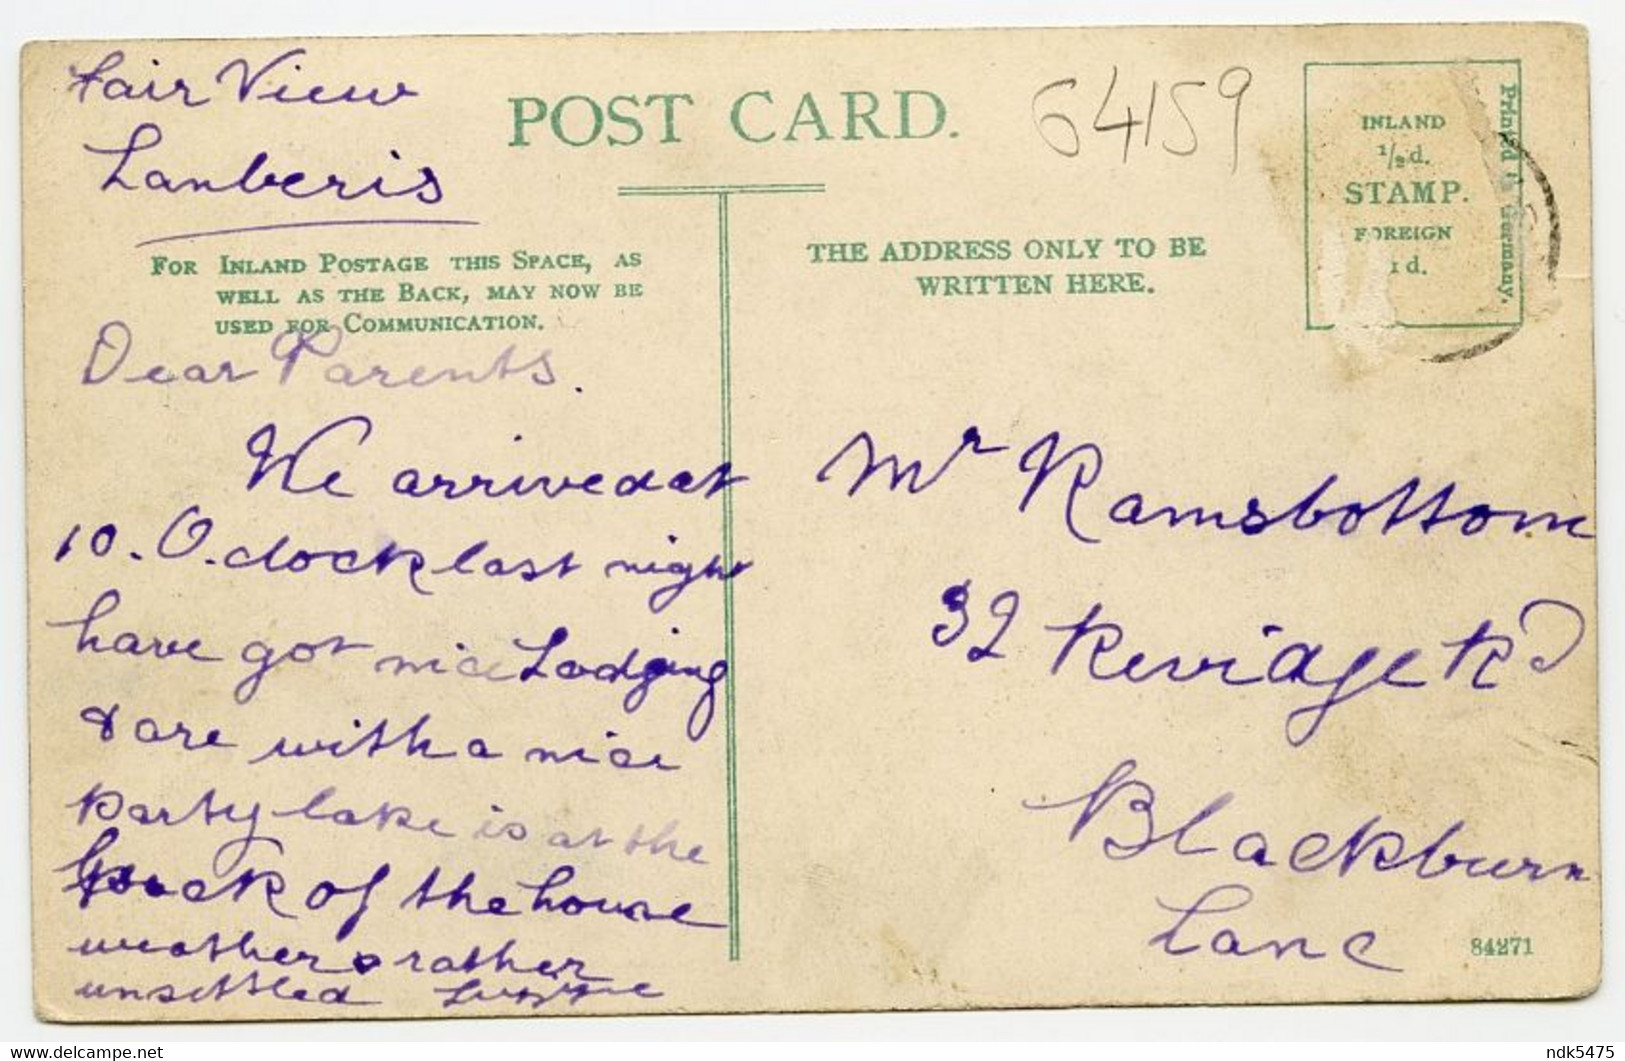 Fair View
Lanberis
POST CARD.
64159
INLAND
1/2 d.
STAMP.
FOREIGN
1d.
Printed in Germany.
FOR INLAND POSTAGE THIS SPACE, AS
WELL AS THE BACK, MAY NOW BE
USED FOR COMMUNICATION.
THE ADDRESS ONLY TO BE
WRITTEN HERE.
Dear Parents.
We arrived at
10. O. clock last night
have got nice Lodging
& are with a nice
party lake is at the
back of the house
weather rather
unsettled
Mr Ramsbottom
32 Revidge Rd
Blackburn
Lanc
84271
delcampe.net
ndk5475